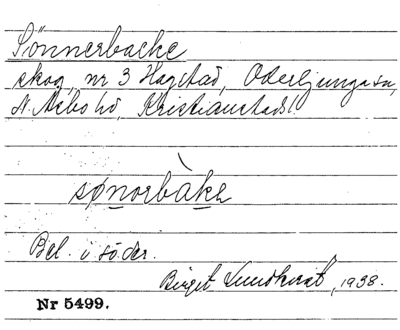 Sönnerbacke
skog, nr 3 Hagstad, Oderljunga sn,
N. Åsbo hd, Kristianstads l.
sønorbàkə
Bel. i söder.
Birgit Lundkvist, 1938.
Nr 5499.